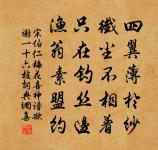 四翼薄於紗
纖塵不相着
只在釣丝邊
漁翁素盟約
宋伯仁梅花喜神譜欲
謝一十六枝詞典網集